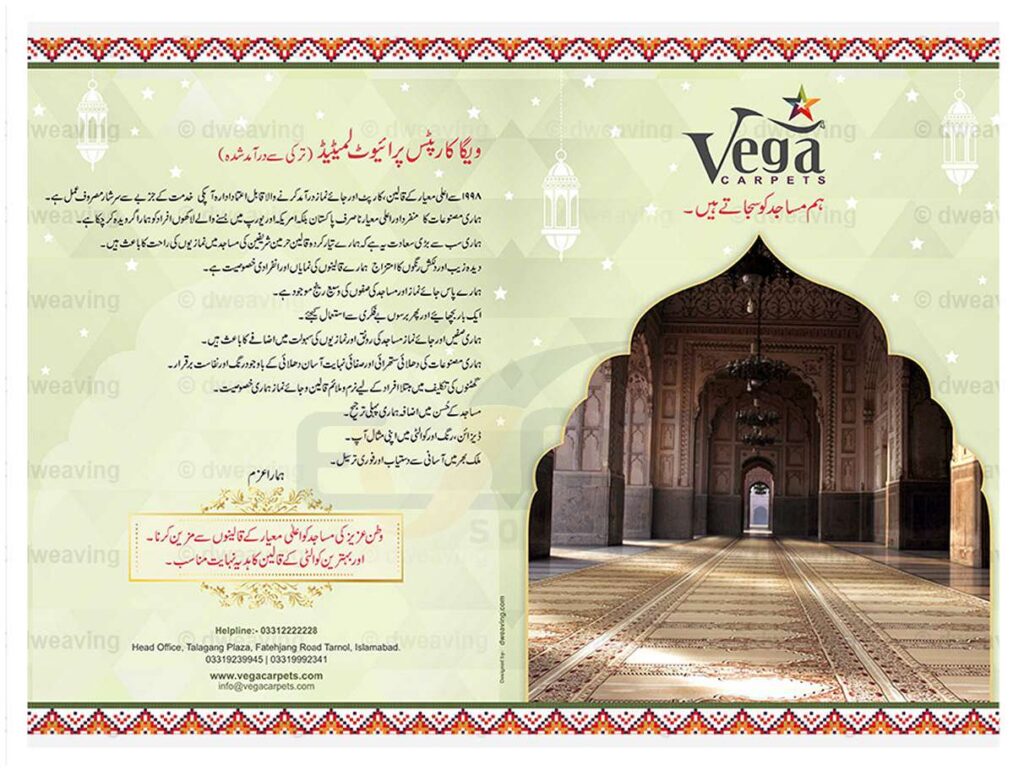 ویگا کارپٹس پرائیوٹ لمیٹیڈ (ترکی سے درآمد شدہ)
۱۹۹۸ سے اعلیٰ معیار کے قالین، کارپٹ اور جائے نماز درآمد کرنے والا قابل اعتماد ادارہ آپکی خدمت کے جزبے سے سرشار مصروف عمل ہے۔
ہماری مصنوعات کا منفرد اور اعلیٰ معیار نا صرف پاکستان بلکہ امریکہ اور یورپ میں بسنے والے لاکھوں افراد کو ہمارا گرویدہ کر چکا ہے۔
ہماری سب سے بڑی سعادت یہ ہے کہ ہمارے تیار کردہ قالین حرمین شریفین کی مساجد میں نمازیوں کی راحت کا باعث ہیں۔
دیدہ زیب اور دلکش رنگوں کا امتزاج ہمارے قالینوں کی نمایاں اور انفرادی خصوصیت ہے۔
ہمارے پاس جائے نماز اور مساجد کی صفوں کی وسیع رینج موجود ہے۔
ایک بار بچھائیے اور پھر برسوں بے فکری سے استعمال کیجئے۔
ہماری صفیں اور جائے نماز مساجد کی رونق اور نمازیوں کی سہولت میں اضافے کا باعث ہیں۔
ہماری مصنوعات کی دھلائی ستھرائی اور صفائی نہایت آسان دھلائی کے باوجود رنگ اور نفاست برقرار۔
گھٹنوں کی تکلیف میں مبتلا افراد کے لیے نرم و ملائم قالین و جائے نماز ہماری خصوصیت۔
مساجد کے حُسن میں اضافہ ہماری پہلی ترجیح۔
ڈیزائن، رنگ اور کوالٹی میں اپنی مثال آپ۔
ملک بھر میں آسانی سے دستیاب اور فوری ترسیل۔
ہمارا عزم
وطن عزیز کی مساجد کو اعلیٰ معیار کے قالینوں سے مزین کرنا۔
اور بہترین کوالٹی کے قالین کا ہدیہ نہایت مناسب۔
Helpline:- 03312222228
Head Office, Talagang Plaza, Fatehjang Road Tarnol, Islamabad.
03319239945 | 03319992341
www.vegacarpets.com
info@vegacarpets.com
Designed by:- dweaving.com
Vega
CARPETS
ہم مساجد کو سجاتے ہیں۔
© dweaving